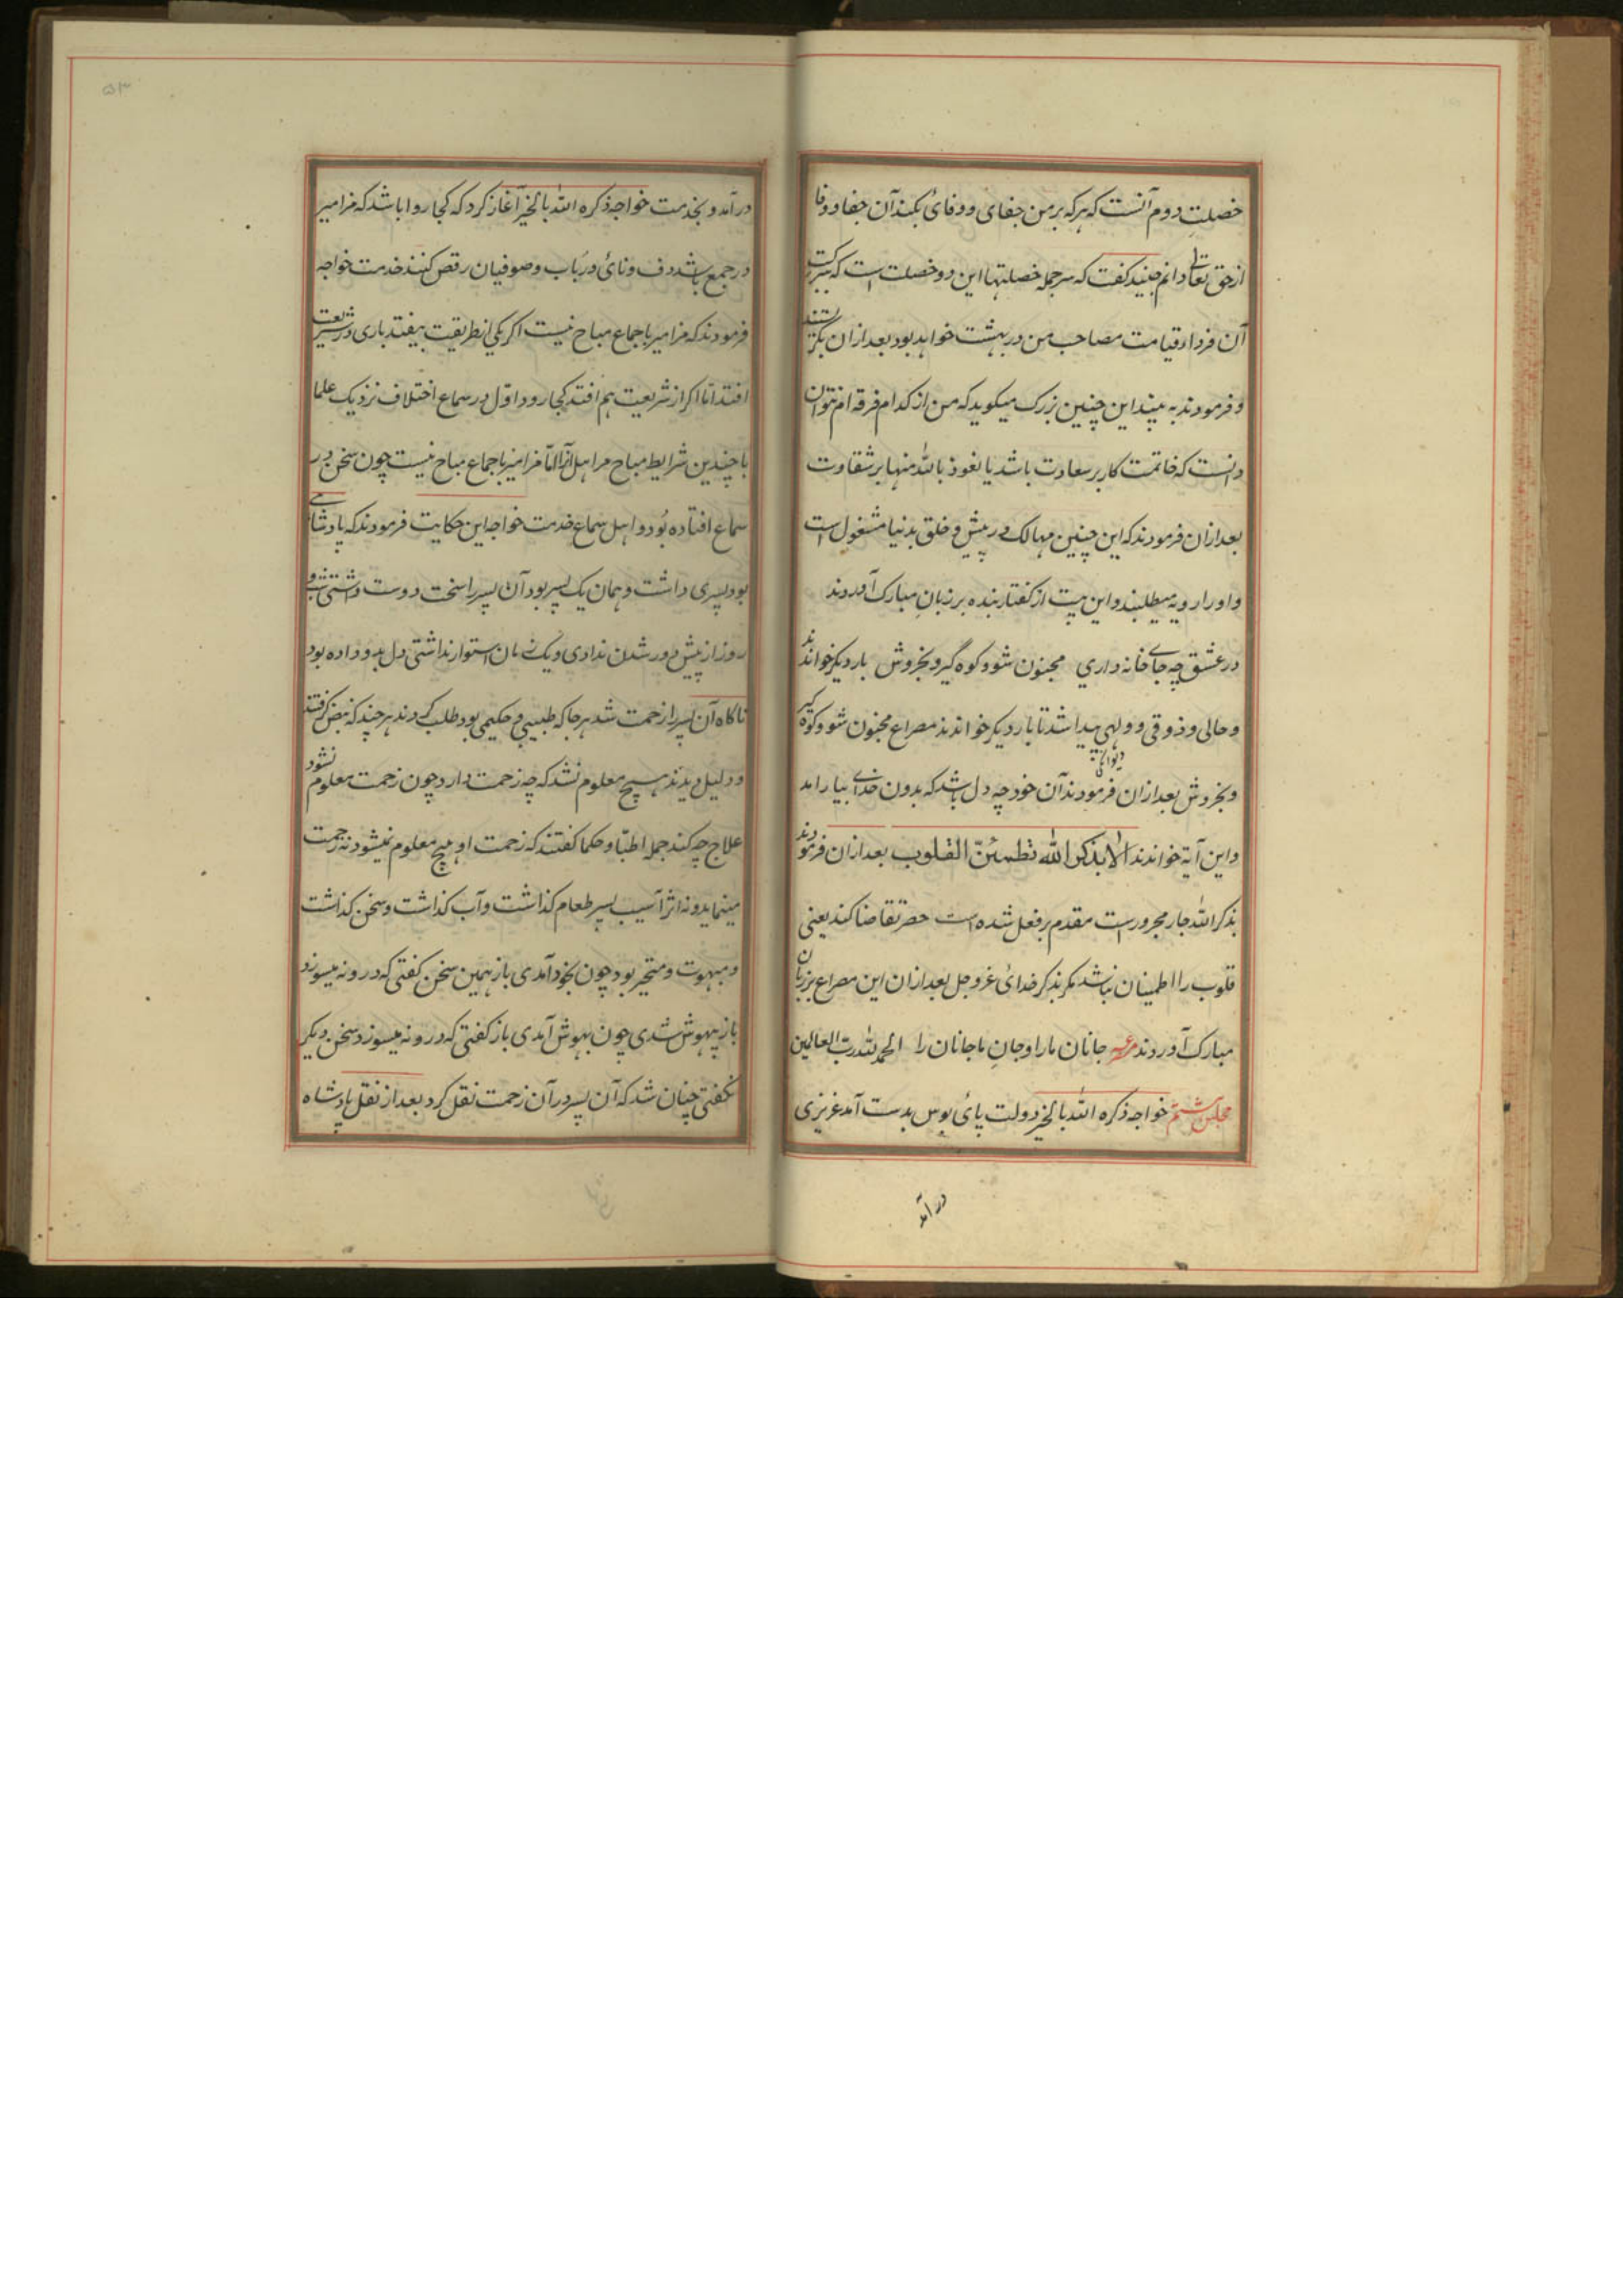 خصلت دوم آنست که هرکه بر من جفای و وفائ بکند آن جفا و وفا
از حق تعالی دانم جنید گفت که سرجمله خصلتها این دو خصلت است که ببرکت
آن فردا در قیامت مصاحب من در بهشت خواهد بود بعد ازان بگریستند
و فرمودند به بینید این چنین بزرک میکوید که من از کدام فرقه ام نتوان
دانست که خاتمت کار بر سعادت باشد یا نعوذ بالله منها بر شقاوت
بعد ازان فرمودند که این چنین مهالک در پیش و خلق بدنیا مشغول است
و او را رویه میطلبند و این بیت از کفتار بنده بر زبان مبارک آوردند
در عشق چه جاے خانه داری مجنون شو و کوه گیر و بخروش بار دیکر خواندند
و حالی و ذوقی و ولهی پیدا شد تا بار دیکر خواندند مصراع مجنون شو و کوه گیر
و بخروش بعد ازان فرمودند آن خود چه دل باشد که بدون خداے بیارامد
و این آیة خواندند الا بذکر الله تطمئنّ القلوب بعد ازان فرمودند
بذکر الله جار مجرور است مقدم بر فعل شده است حصر تقاضا کند یعنی
قلوب را اطمینان نباشد مکر بذکر خدائ عز و جل بعد ازان این مصراع بر زبان
مبارک آوردند مصرعه جانان ما را و جان ما جانان را الحمد لله رب العالمین
مجلس ششم خواجه ذکره الله بالخیر دولت پائ بوس بدست آمد عزیزی
در آمد
۵۳
در آمد و بخدمت خواجه ذکره الله بالخیر آغاز کرد که کجا روا باشد که مزامیر
در جمع باشد دف و نائ و رباب و صوفیان رقص کنند خدمت خواجه
فرمودند که مزامیر باجماع مباح نیست اکر یکی از طریقت بیفتد باری در شریعت
افتد اما اکر از شریعت هم افتد کجا رود اوّل در سماع اختلاف نزدیک علما
با چندین شرایط مباح مر اهل آنرا امّا مزامیر باجماع مباح نیست چون سخن در
سماع افتاده بُود و اهل سماع خدمت خواجه این حکایت فرمودند که پادشاهے
بود پسری داشت و همان یک پسر بود آن پسر را سخت دوست داشتی شب و
روز از پیش دور شدن ندادی و یک زمان استوار نداشتی دل بدو داده بود
ناکاه آن پسر را زحمت شد هر جا که طبیبی و حکیمی بود طلب کردند هر چند که نبض کرفتند
و دلیل دیدند هیچ معلوم نشد که چه زحمت دارد چون زحمت معلوم نشود
علاج چه کند جمله اطبّا و حکما کفتند که زحمت او هیچ معلوم نمیشود نه زحمت
مینماید و نه اثر آسیب پسر طعام کذاشت و آب کذاشت و سخن کذاشت
و مبهوت و متحیر بود چون بخود آمدی باز همین سخن کفتی که درونه میسوزد
باز بیهوش شدی چون بهوش آمدی باز کفتی که درونه میسوزد سخن دیکر
نکفتی چنان شد که آن پسر در آن زحمت نقل کرد بعد از نقل پادشاه